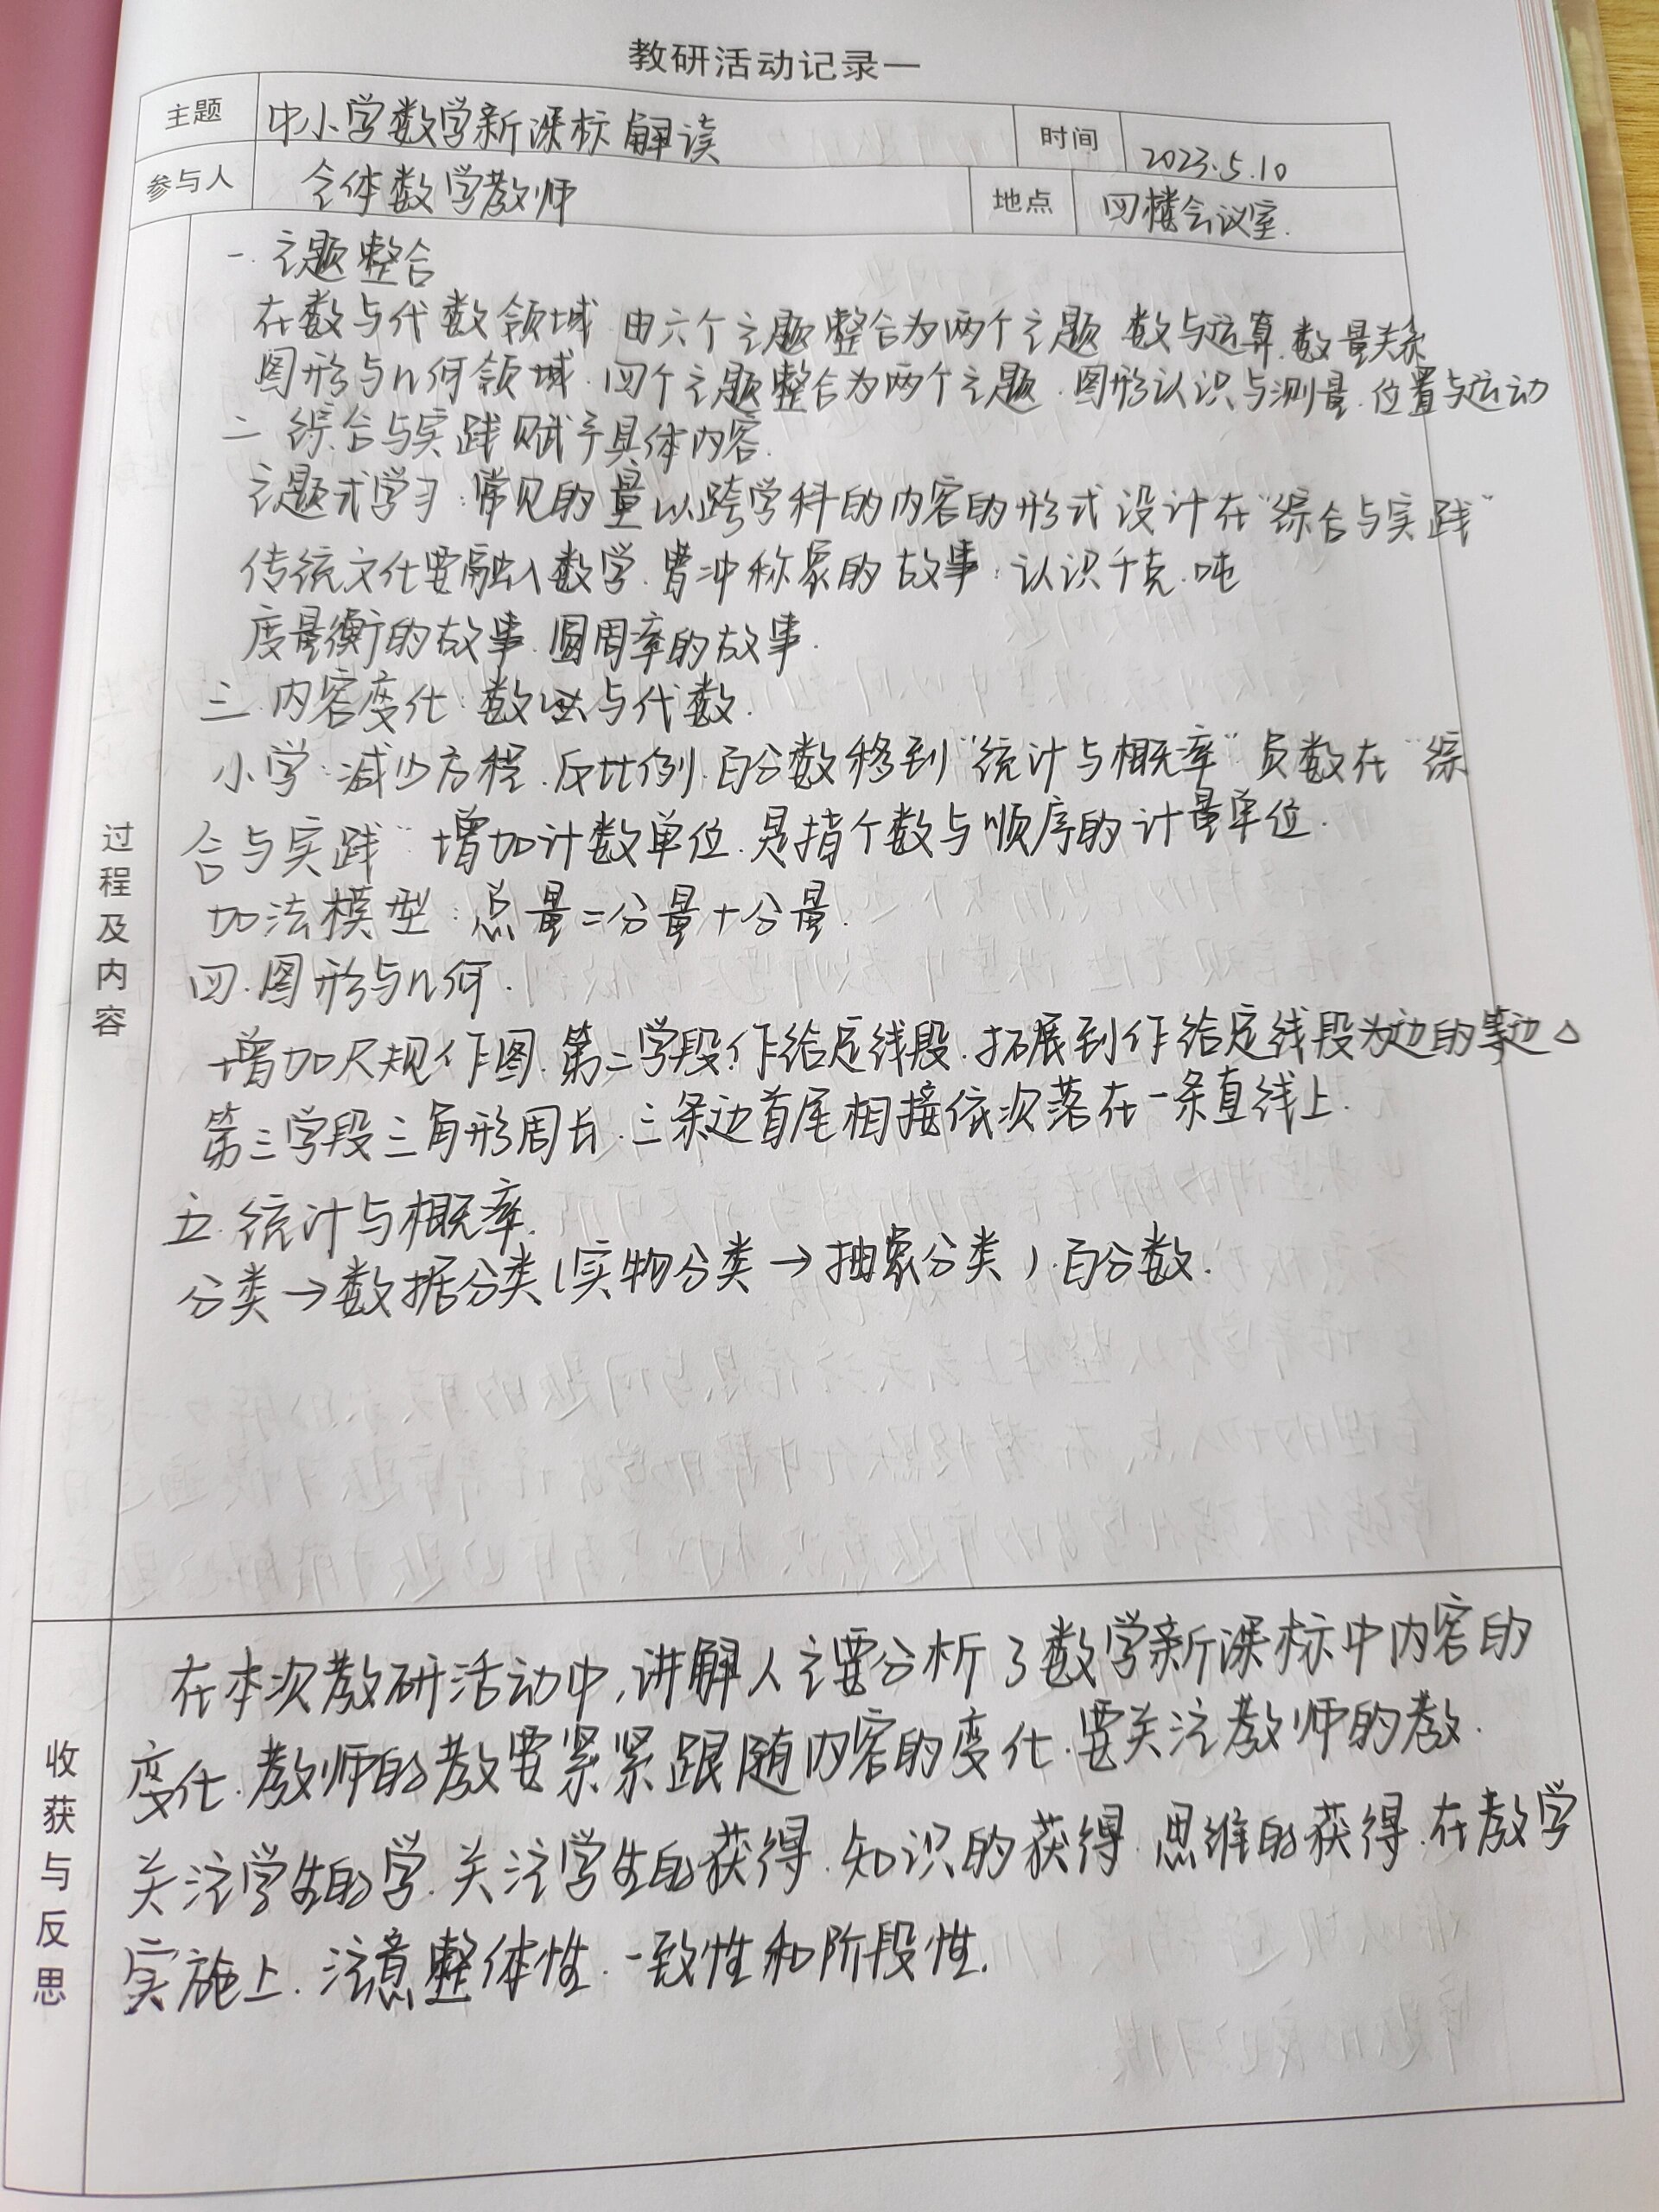 教研活动记录一
主题 中小学数学新课标解读 时间 2023.5.10
参与人 全体数学教师 地点 四楼会议室.
过程及内容
一.主题整合
在数与代数领域 由六个主题整合为两个主题 数与运算.数量关系
图形与几何领域.四个主题整合为两个主题.图形认识与测量.位置与运动
二 综合与实践赋予具体内容.
主题式学习:常见的量以跨学科的内容的形式设计在"综合与实践"
传统文化要融入数学.曹冲称象的故事:认识千克.吨
度量衡的故事.圆周率的故事.
三.内容变化:数与代数.
小学:减少方程.反比例.百分数移到"统计与概率" 负数在"综
合与实践" 增加计数单位.是指个数与顺序的计量单位.
加法模型:总量=分量+分量.
四.图形与几何.
增加尺规作图.第二学段.作给定线段.拓展到作给定线段为边的等边△
第三学段三角形周长.三条边首尾相接依次落在一条直线上.
五.统计与概率.
分类→数据分类(实物分类→抽象分类).百分数.
收获与反思
在本次教研活动中,讲解人主要分析了数学新课标中内容的
变化.教师的教要紧紧跟随内容的变化.要关注教师的教.
关注学生的学.关注学生的获得.知识的获得.思维的获得.在教学
实施上.注意整体性.一致性和阶段性.